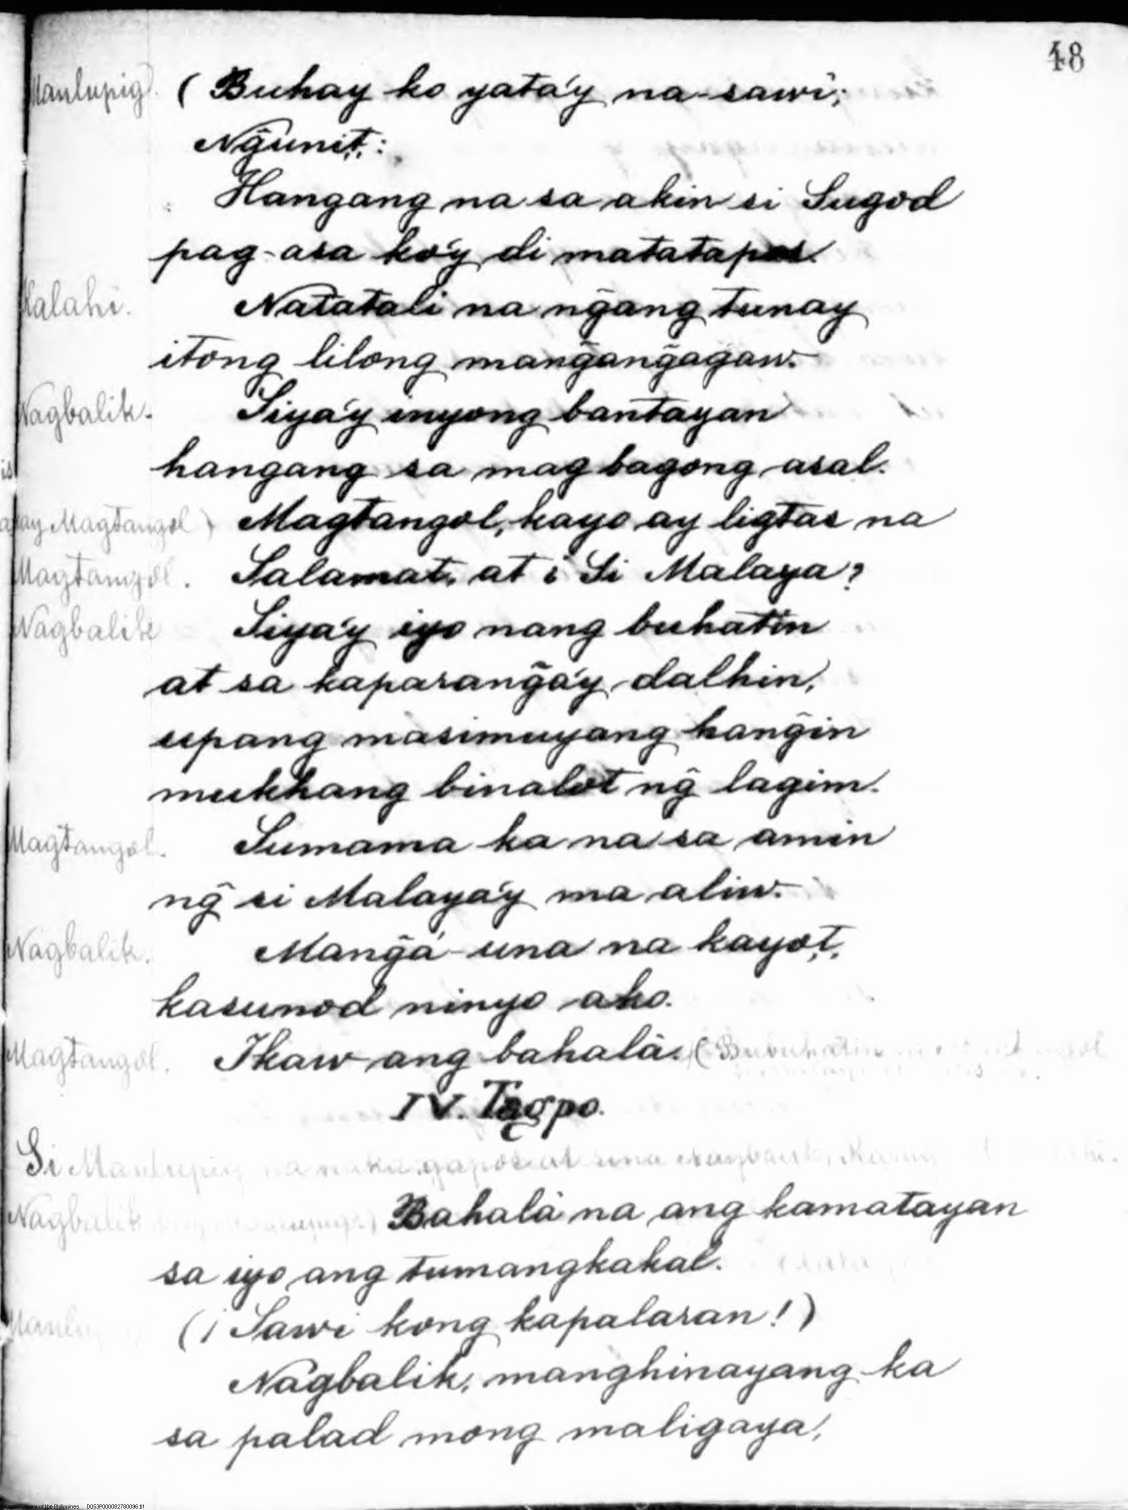 48
Manlupig. ( Buhay ko yata'y na-sawi;
Ng̃unit:
Hangang na sa akin si Sugod
pag-asa ko'y di matatapos.
Kalahi. Natatali na ng̃ang tunay
itong lilong mang̃ang̃agaw.
Nagbalik. Siya'y inyong bantayan
hangang sa magbagong asal.
kay Magtangol ) Magtangol, kayo ay ligtas na
Magtangol. Salamat, at ¿ Si Malaya?
Nagbalik Siya'y iyo nang buhatin
at sa kaparang̃a'y dalhin,
upang masimuyang hang̃in
mukhang binalot ng̃ lagim.
Magtangol. Sumama ka na sa amin
ng̃ si Malaya'y ma aliw.
Nagbalik. Mang̃á-una na kayo't,
kasunod ninyo ako.
Magtangol. Ikaw ang bahalà. ( Bubuhatin
IV. Tagpo.
Si Manlupig na naka gapos at sina Nagbalik,
Nagbalik Bahalà na ang kamatayan
sa iyo ang tumangkakal.
(¡ Sawi kong kapalaran!)
Nagbalik, manghinayang ka
sa palad mong maligaya,